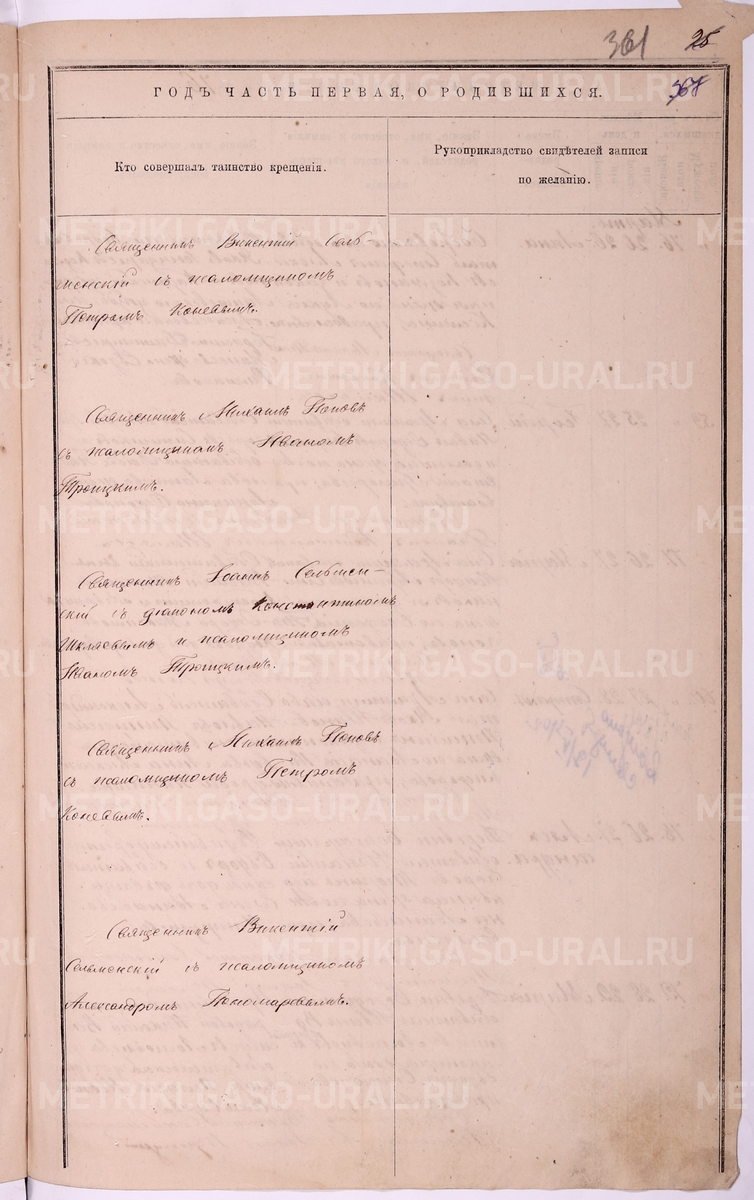 361 25
368
ГОДЪ ЧАСТЬ ПЕРВАЯ, О РОДИВШИХСЯ.
Кто совершалъ таинство крещенія.
Рукоприкладство свидѣтелей записи
по желанію.
Священникъ Викентій Сель-
менскій съ псаломщикомъ
Петромъ Коневымъ.
Священникъ Михаилъ Поповъ
съ псаломщикомъ Иваномъ
Троицкимъ.
Священникъ Іоаннъ Сельмен-
скій съ діакономъ Константиномъ
Шкляевымъ и псаломщикомъ
Иваномъ Троицкимъ.
Священникъ Михаилъ Поповъ
съ псаломщикомъ Петромъ
Коневымъ.
Священникъ Викентій
Сельменскій съ псаломщикомъ
Александромъ Пономаревымъ.
METRIKI.GASO-URAL.RU